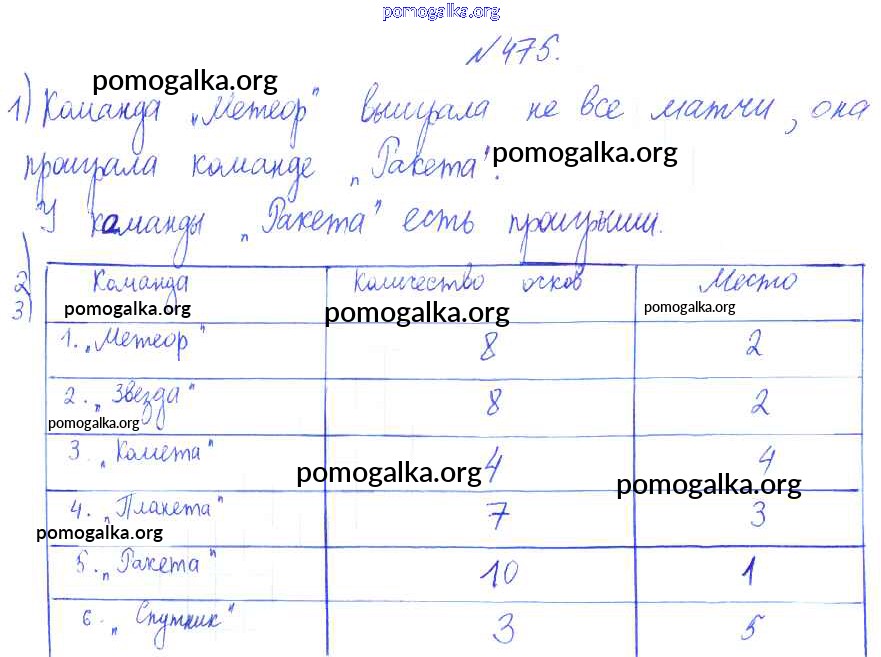 pomogalka.org
№475.
pomogalka.org
1) Команда „Метеор" выиграла не все матчи, она
проиграла команде „Ракета". pomogalka.org
У команды „Ракета" есть проигрыши.
2)
3)
Команда Количество очков Место
pomogalka.org pomogalka.org pomogalka.org
1. „Метеор" 8 2
2. „Звезда" 8 2
pomogalka.org
3. „Комета" 4 4
pomogalka.org pomogalka.org
4. „Планета" 7 3
pomogalka.org
5. „Ракета" 10 1
6. „Спутник" 3 5